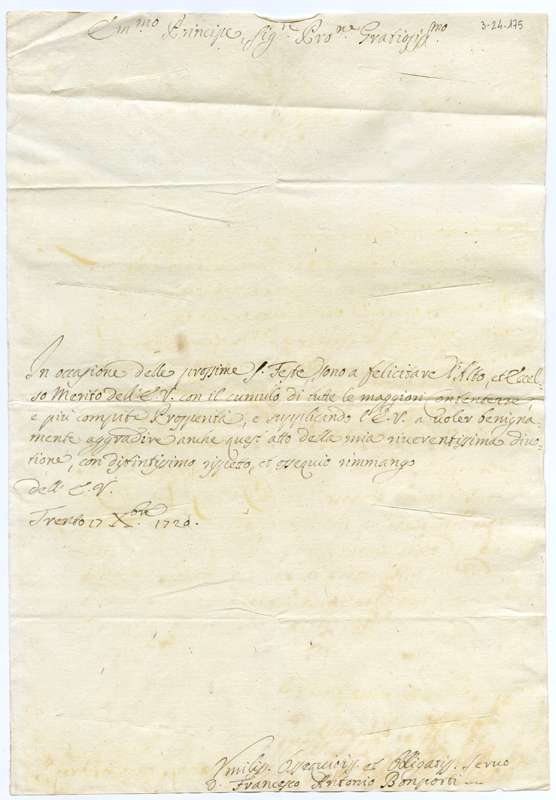 Em.mo Principe, Sig.re Pro.ne Gratiosiss.mo
3-24.175
In occasione delle prossime S. Feste sono a felicitare l'Alto, et Eccel-
so Merito dell'E.V. con il cumulo di tutte le maggiori contentezze,
e più compite Prosperità, e supplicando l'E.V. a voler benigna-
mente aggradire anche quest'atto della mia riverentissima divo-
tione, con distintissimo rispetto, et ossequio rimmango
dell'E.V.
Trento 17 X.bre 1720.
Umiliss. Ossequiosiss. et Obligatiss. Servo
Francesco Antonio Bonporti